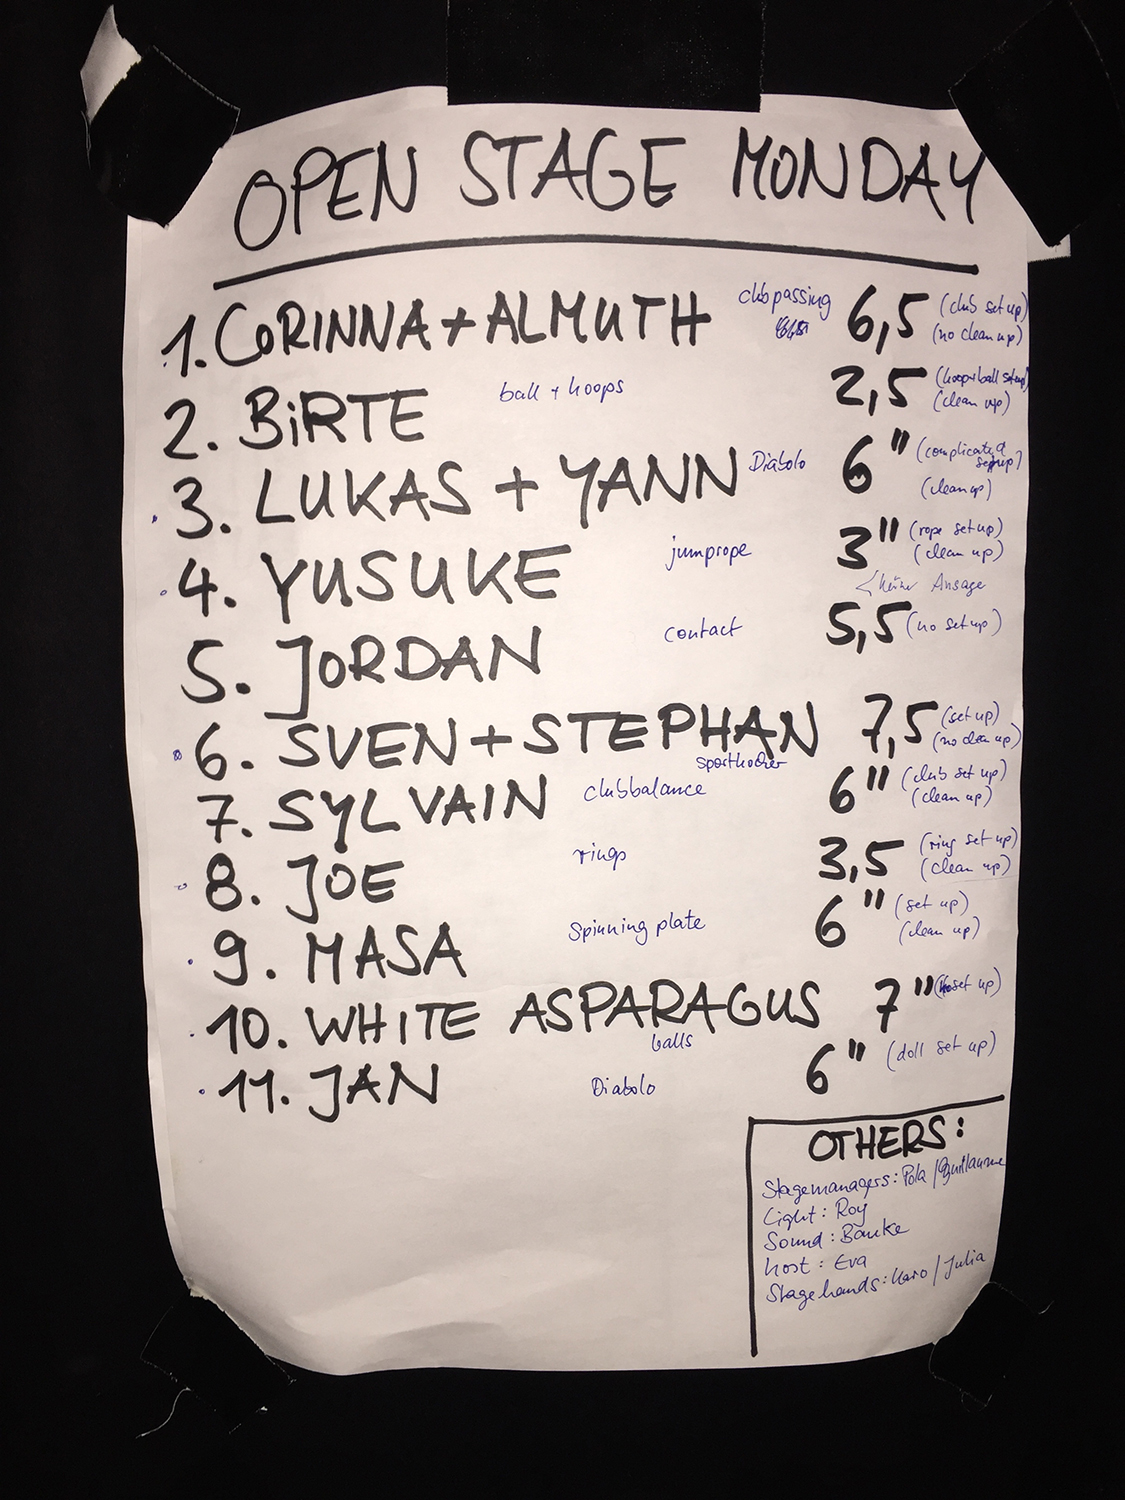 OPEN STAGE MONDAY
1. CORINNA + ALMUTH clubpassing 6,5 (club set up) (no clean up)
2. BiRTE ball + hoops 2,5 (hoop+ball set up) (clean up)
3. LUKAS + YANN Diabolo 6" (complicated setup) (clean up)
4. YUSUKE jumprope 3" (rope set up) (clean up)
keine Ansage
5. JORDAN contact 5,5 (no set up)
6. SVEN + STEPHAN sporthocker 7,5 (set up) (no clean up)
7. SYLVAIN clubbalance 6" (club set up) (clean up)
8. JOE rings 3,5 (ring set up) (clean up)
9. MASA Spinning plate 6" (set up) (clean up)
10. WHITE ASPARAGUS balls 7" (set up)
11. JAN Diabolo 6" (doll set up)
OTHERS:
Stagemanagers: Pola / Guillaume
Light: Roy
Sound: Bauke
host: Eva
Stagehands: Karo / Julia